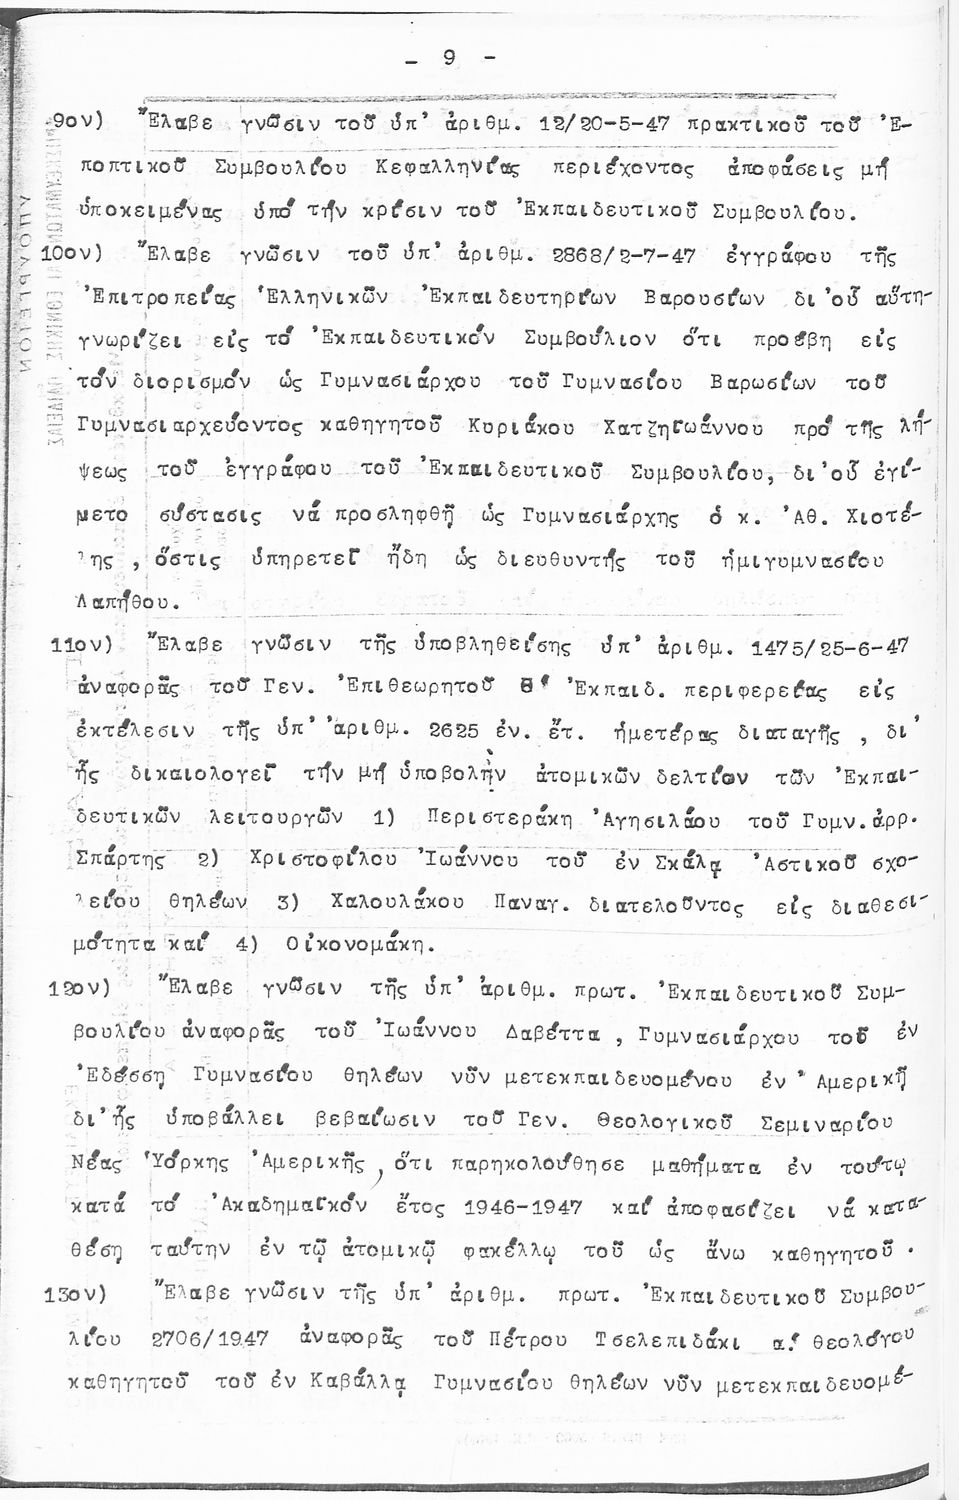 - 9 -
9ον) Ἔλαβε γνῶσιν τοῦ ὑπ' ἀριθμ. 12/20-5-47 πρακτικοῦ τοῦ Ἐ-
ποπτικοῦ Συμβουλίου Κεφαλληνίας περιέχοντος ἀποφάσεις μή
ὑποκειμένας ὑπό τήν κρίσιν τοῦ Ἐκπαιδευτικοῦ Συμβουλίου.
10ον) Ἔλαβε γνῶσιν τοῦ ὑπ' ἀριθμ. 2868/2-7-47 ἐγγράφου τῆς
Ἐπιτροπείας Ἑλληνικῶν Ἐκπαιδευτηρίων Βαρουσίων δι'οὗ αὕτη
γνωρίζει εἰς τό Ἐκπαιδευτικόν Συμβούλιον ὅτι προέβη εἰς
τόν διορισμόν ὡς Γυμνασιάρχου τοῦ Γυμνασίου Βαρωσίων τοῦ
Γυμνασιαρχεύοντος καθηγητοῦ Κυριάκου Χατζηϊωάννου πρό τῆς λή-
ψεως τοῦ ἐγγράφου τοῦ Ἐκπαιδευτικοῦ Συμβουλίου, δι'οὗ ἐγί-
μετο σύστασις νά προσληφθῇ ὡς Γυμνασιάρχης ὁ κ. Ἀθ. Χιοτέ-
λης , ὅστις ὑπηρετεῖ ἤδη ὡς διευθυντής τοῦ ἡμιγυμνασίου
Λαπήθου.
11ον) Ἔλαβε γνῶσιν τῆς ὑποβληθείσης ὑπ' ἀριθμ. 1475/25-6-47
ἀναφορᾶς τοῦ Γεν. Ἐπιθεωρητοῦ Θ' Ἐκπαιδ. περιφερείας εἰς
ἐκτέλεσιν τῆς ὑπ' ἀριθμ. 2625 ἐν. ἔτ. ἡμετέρας διαταγῆς , δι'
ἧς δικαιολογεῖ τήν μή ὑποβολὴν ἀτομικῶν δελτίων τῶν Ἐκπαι-
δευτικῶν λειτουργῶν 1) Περιστεράκη Ἀγησιλάου τοῦ Γυμν.ἀρρ.
Σπάρτης 2) Χριστοφίλου Ἰωάννου τοῦ ἐν Σκάλᾳ Ἀστικοῦ σχο-
λείου θηλέων 3) Χαλουλάκου Παναγ. διατελοῦντος εἰς διαθεσι-
μότητα καί 4) Οἰκονομάκη.
12ον) Ἔλαβε γνῶσιν τῆς ὑπ' ἀριθμ. πρωτ. Ἐκπαιδευτικοῦ Συμ-
βουλίου ἀναφορᾶς τοῦ Ἰωάννου Δαβέττα , Γυμνασιάρχου τοῦ ἐν
Ἐδέσσῃ Γυμνασίου θηλέων νῦν μετεκπαιδευομένου ἐν Ἀμερικῇ
δι'ἧς ὑποβάλλει βεβαίωσιν τοῦ Γεν. Θεολογικοῦ Σεμιναρίου
Νέας Ὑόρκης Ἀμερικῆς, ὅτι παρηκολούθησε μαθήματα ἐν τούτῳ
κατά τό Ἀκαδημαϊκόν ἔτος 1946-1947 καί ἀποφασίζει νά κατα-
θέσῃ ταύτην ἐν τῷ ἀτομικῷ φακέλλῳ τοῦ ὡς ἄνω καθηγητοῦ .
13ον) Ἔλαβε γνῶσιν τῆς ὑπ' ἀριθμ. πρωτ. Ἐκπαιδευτικοῦ Συμβου-
λίου 2706/1947 ἀναφορᾶς τοῦ Πέτρου Τσελεπιδάκι α.' θεολόγου
καθηγητοῦ τοῦ ἐν Καβάλλᾳ Γυμνασίου θηλέων νῦν μετεκπαιδευομέ-